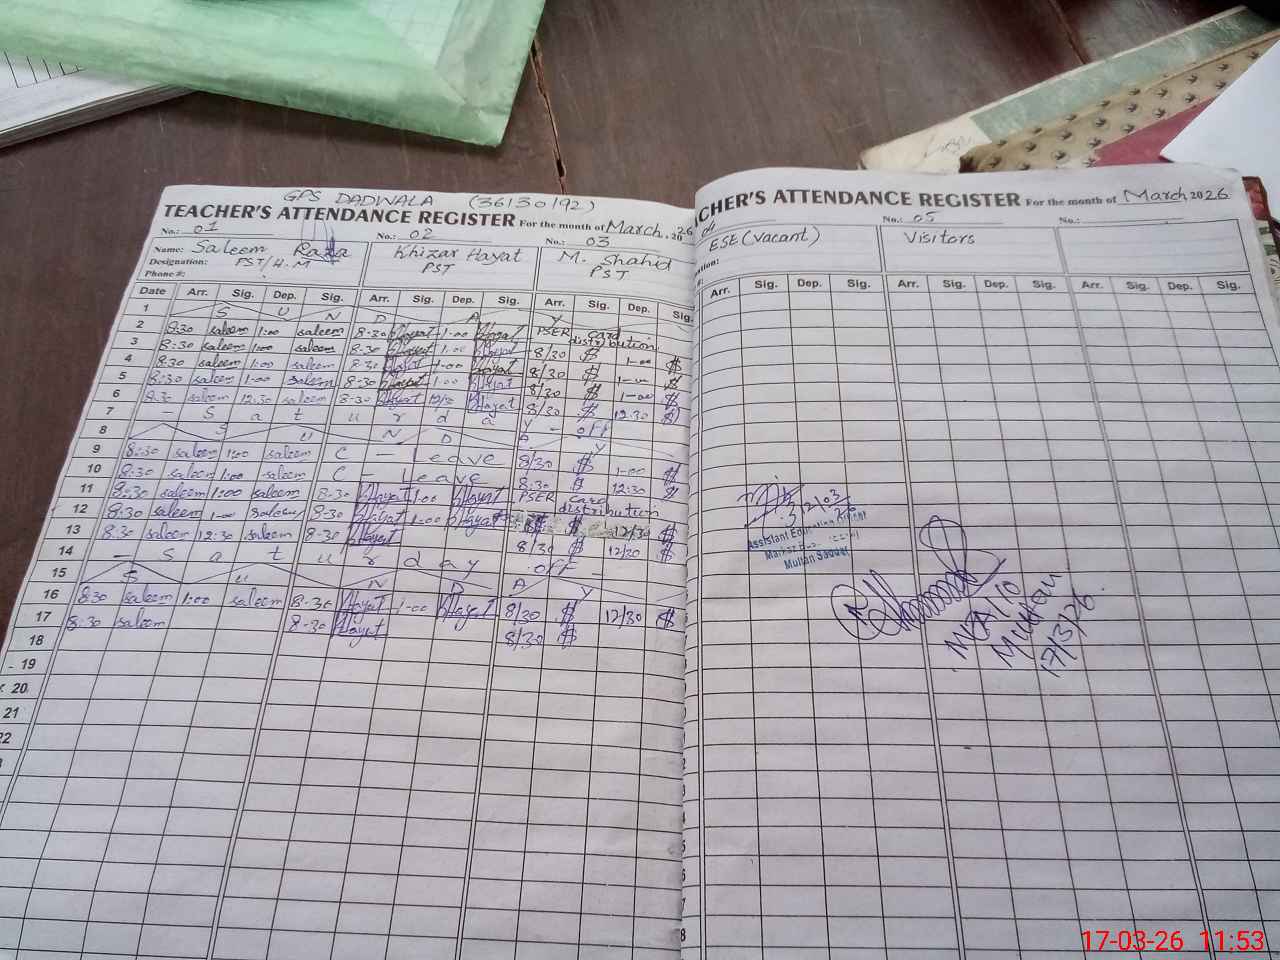 GPS DADIWALA (36130192)
TEACHER'S ATTENDANCE REGISTER For the month of March, 2026
No.: 01 No.: 02 No.: 03
Name: Saleem Raza Khizar Hayat M. Shahid
Designation: PST/H.M PST PST
Phone #:
Date Arr. Sig. Dep. Sig. Arr. Sig. Dep. Sig. Arr. Sig. Dep. Sig.
1 S U N D A Y
2 8:30 saleem 1:00 saleem 8-30 Hayat 1-00 Hayat PSER card distribution
3 8:30 saleem 1:00 saleem 8-30 Hayat 1-00 Hayat 8/30 1-00
4 8:30 saleem 1:00 saleem 8-30 Hayat 1-00 Hayat 8/30
5 8:30 saleem 1:00 saleem 8-30 Hayat 1-00 Hayat 8/30 1-00
6 8:30 saleem 12:30 saleem 8-30 Hayat 12/30 Hayat 8/30 12:30
7 - S a t u r d a y - off
8 S U N D A Y
9 8:30 saleem 1:00 saleem C - Leave 8/30 1-00
10 8:30 saleem 1:00 saleem C - Leave 8:30 12:30
11 8:30 saleem 1:00 saleem 8-30 Hayat 1-00 Hayat PSER card distribution
12 8:30 saleem 1-00 saleem 8-30 Hayat 1-00 Hayat 12/30
13 8:30 saleem 12:30 saleem 8-30 Hayat 8/30 12/30
14 - S a t u r d a y off -
15 S U N D A Y
16 8:30 saleem 1:00 saleem 8-30 Hayat 1-00 Hayat 8/30 12/30
17 8:30 saleem 8-30 Hayat 8/30
18
19
20
21
22
CHER'S ATTENDANCE REGISTER For the month of March, 2026
04 No.: 05 No.:
ESE (Vacant) Visitors
Arr. Sig. Dep. Sig. Arr. Sig. Dep. Sig. Arr. Sig. Dep. Sig.
Assistant Education Officer
Multan Saddar
MEA/10
Multan
17/3/26.
17-03-26 11:53